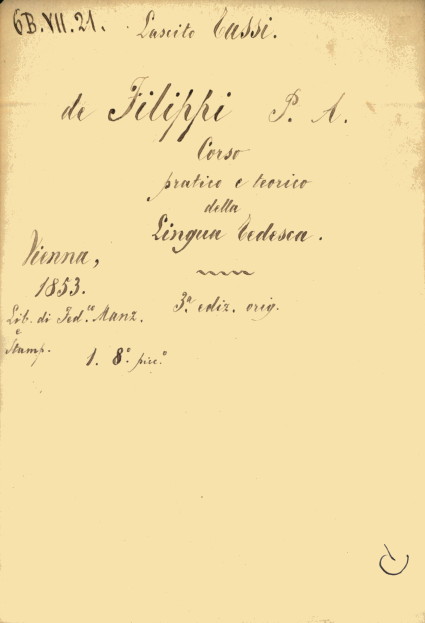 6B.VII.21. Lascito Tassi.
de Filippi P. A.
Corso
pratico e teorico
della
Lingua Tedesca.
Vienna,
1853.
3ª. ediz. orig.
Lib. di Fed.co Manz.
e
Stamp.
1. 8°. picc.°